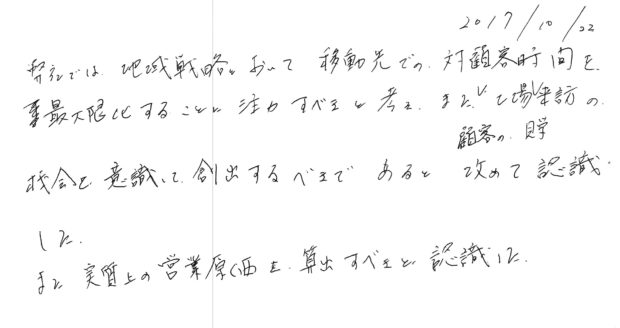 2017/10/22
弊社では地域戦略において移動先での対顧客時間を
最大限化することに注力すべきと考え、また工場来訪の
顧客の見学
機会を意識して創出するべきであると改めて認識
した。
また実質上の営業原価を算出すべきと認識した。